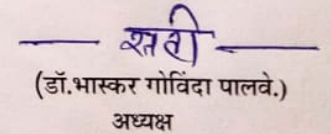 सही
(डॉ.भास्कर गोविंदा पालवे.)
अध्यक्ष